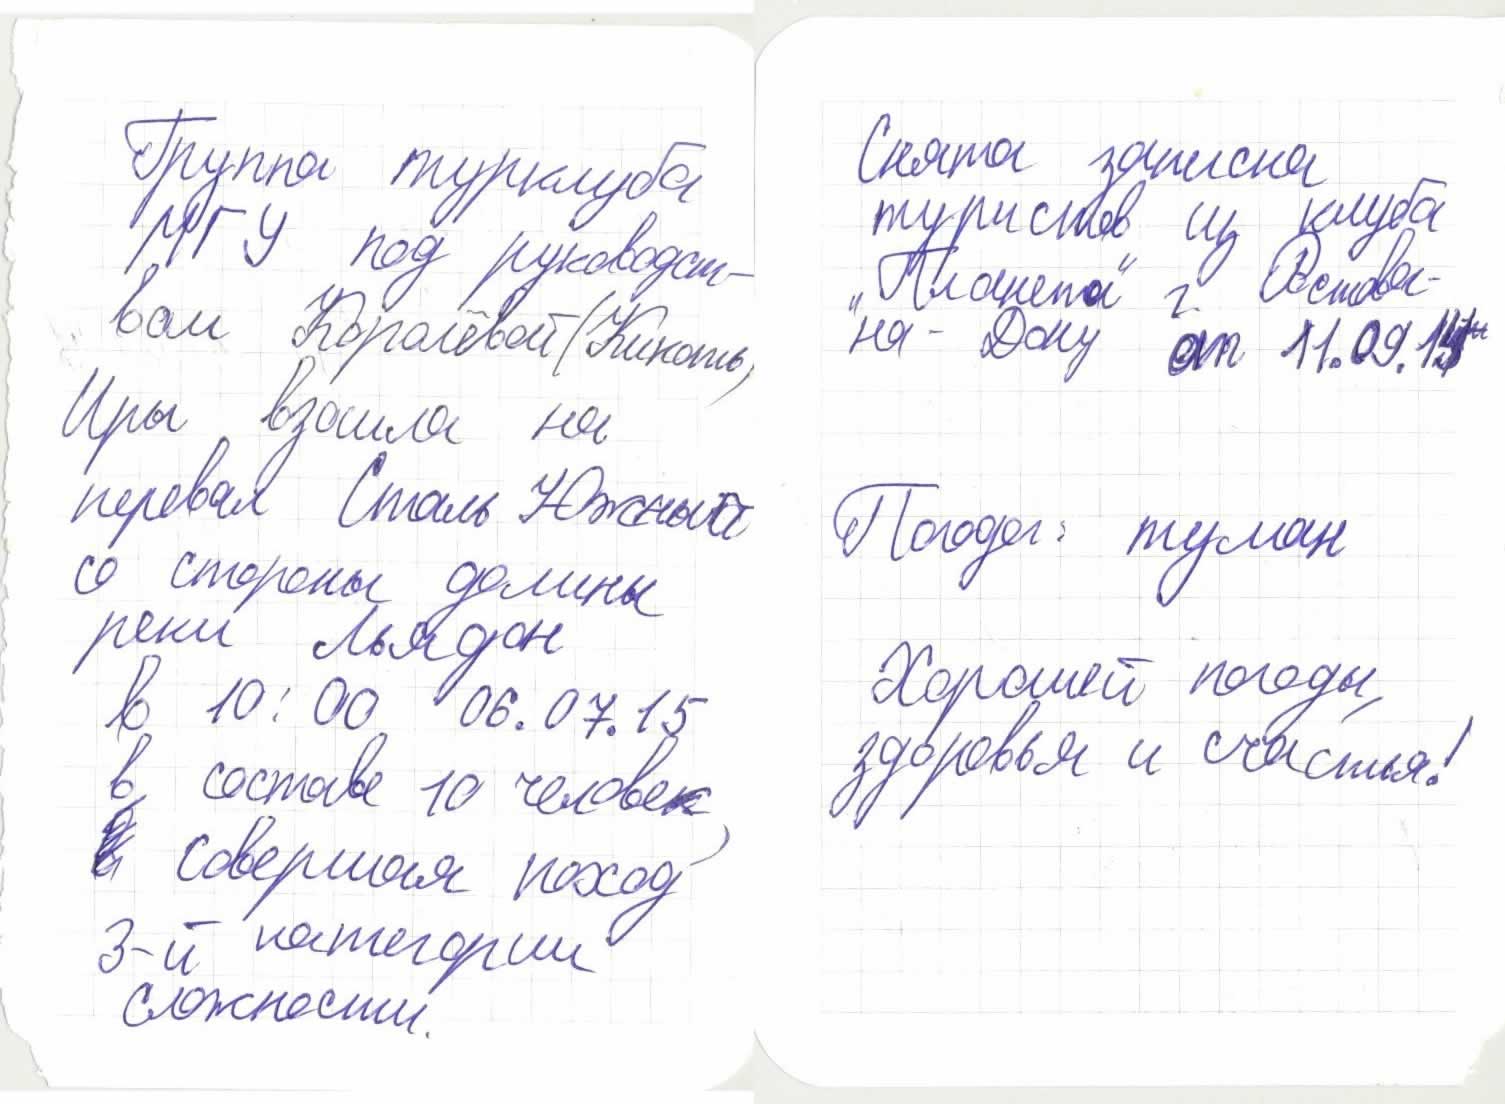 Группа турклуба
МГУ под руководст-
вом Королёвой (Киноть)
Иры взошла на
перевал Сталь Южный
со стороны долины
реки Льядон
в 10:00 06.07.15
в составе 10 человек,
совершая поход
3-й категории
сложности.
Снята записка
туристов из клуба
„Планета“ г. Ростова-
на-Дону от 11.09.14
Погода: туман
Хорошей погоды,
здоровья и счастья!